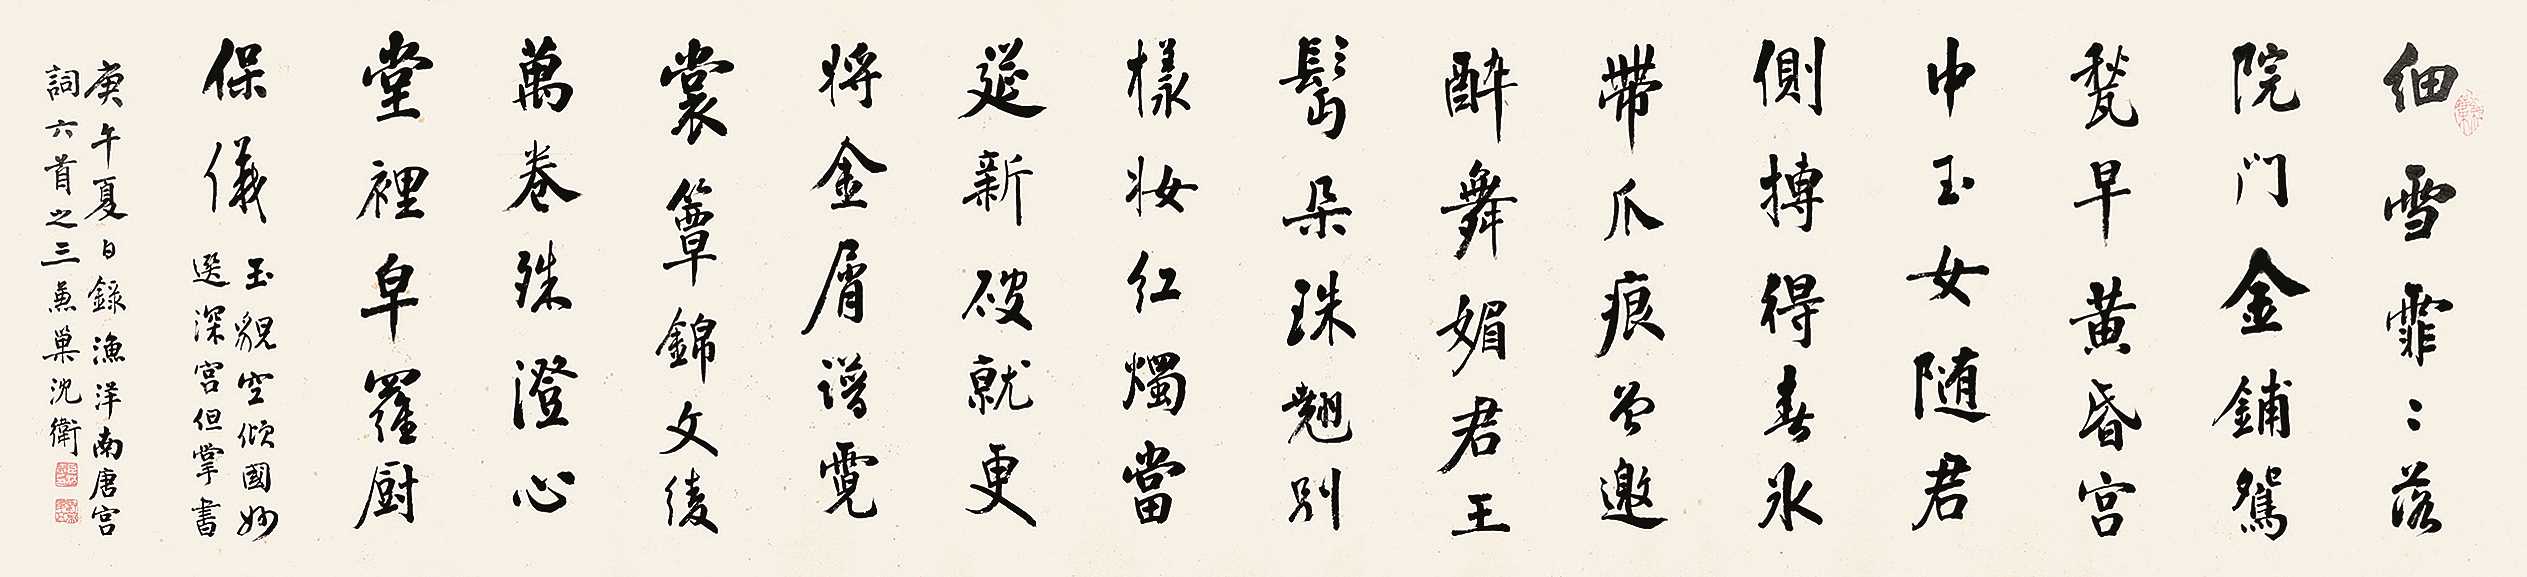 細雪霏〻落
院门金鋪鴛
甃早黄昏宫
中玉女随君
側搏得春氷
帶爪痕曾邀
醉舞媚君王
鬌朵珠翹别
樣妆红燭當
筵新破就更
将金屑譜霓
裳簟錦文綾
萬卷殊澄心
堂裡皁羅厨
保儀
玉貌空傾國妙
選深宫但掌書
庚午夏日錄漁洋南唐宫
詞六首之三兼巢沈衛